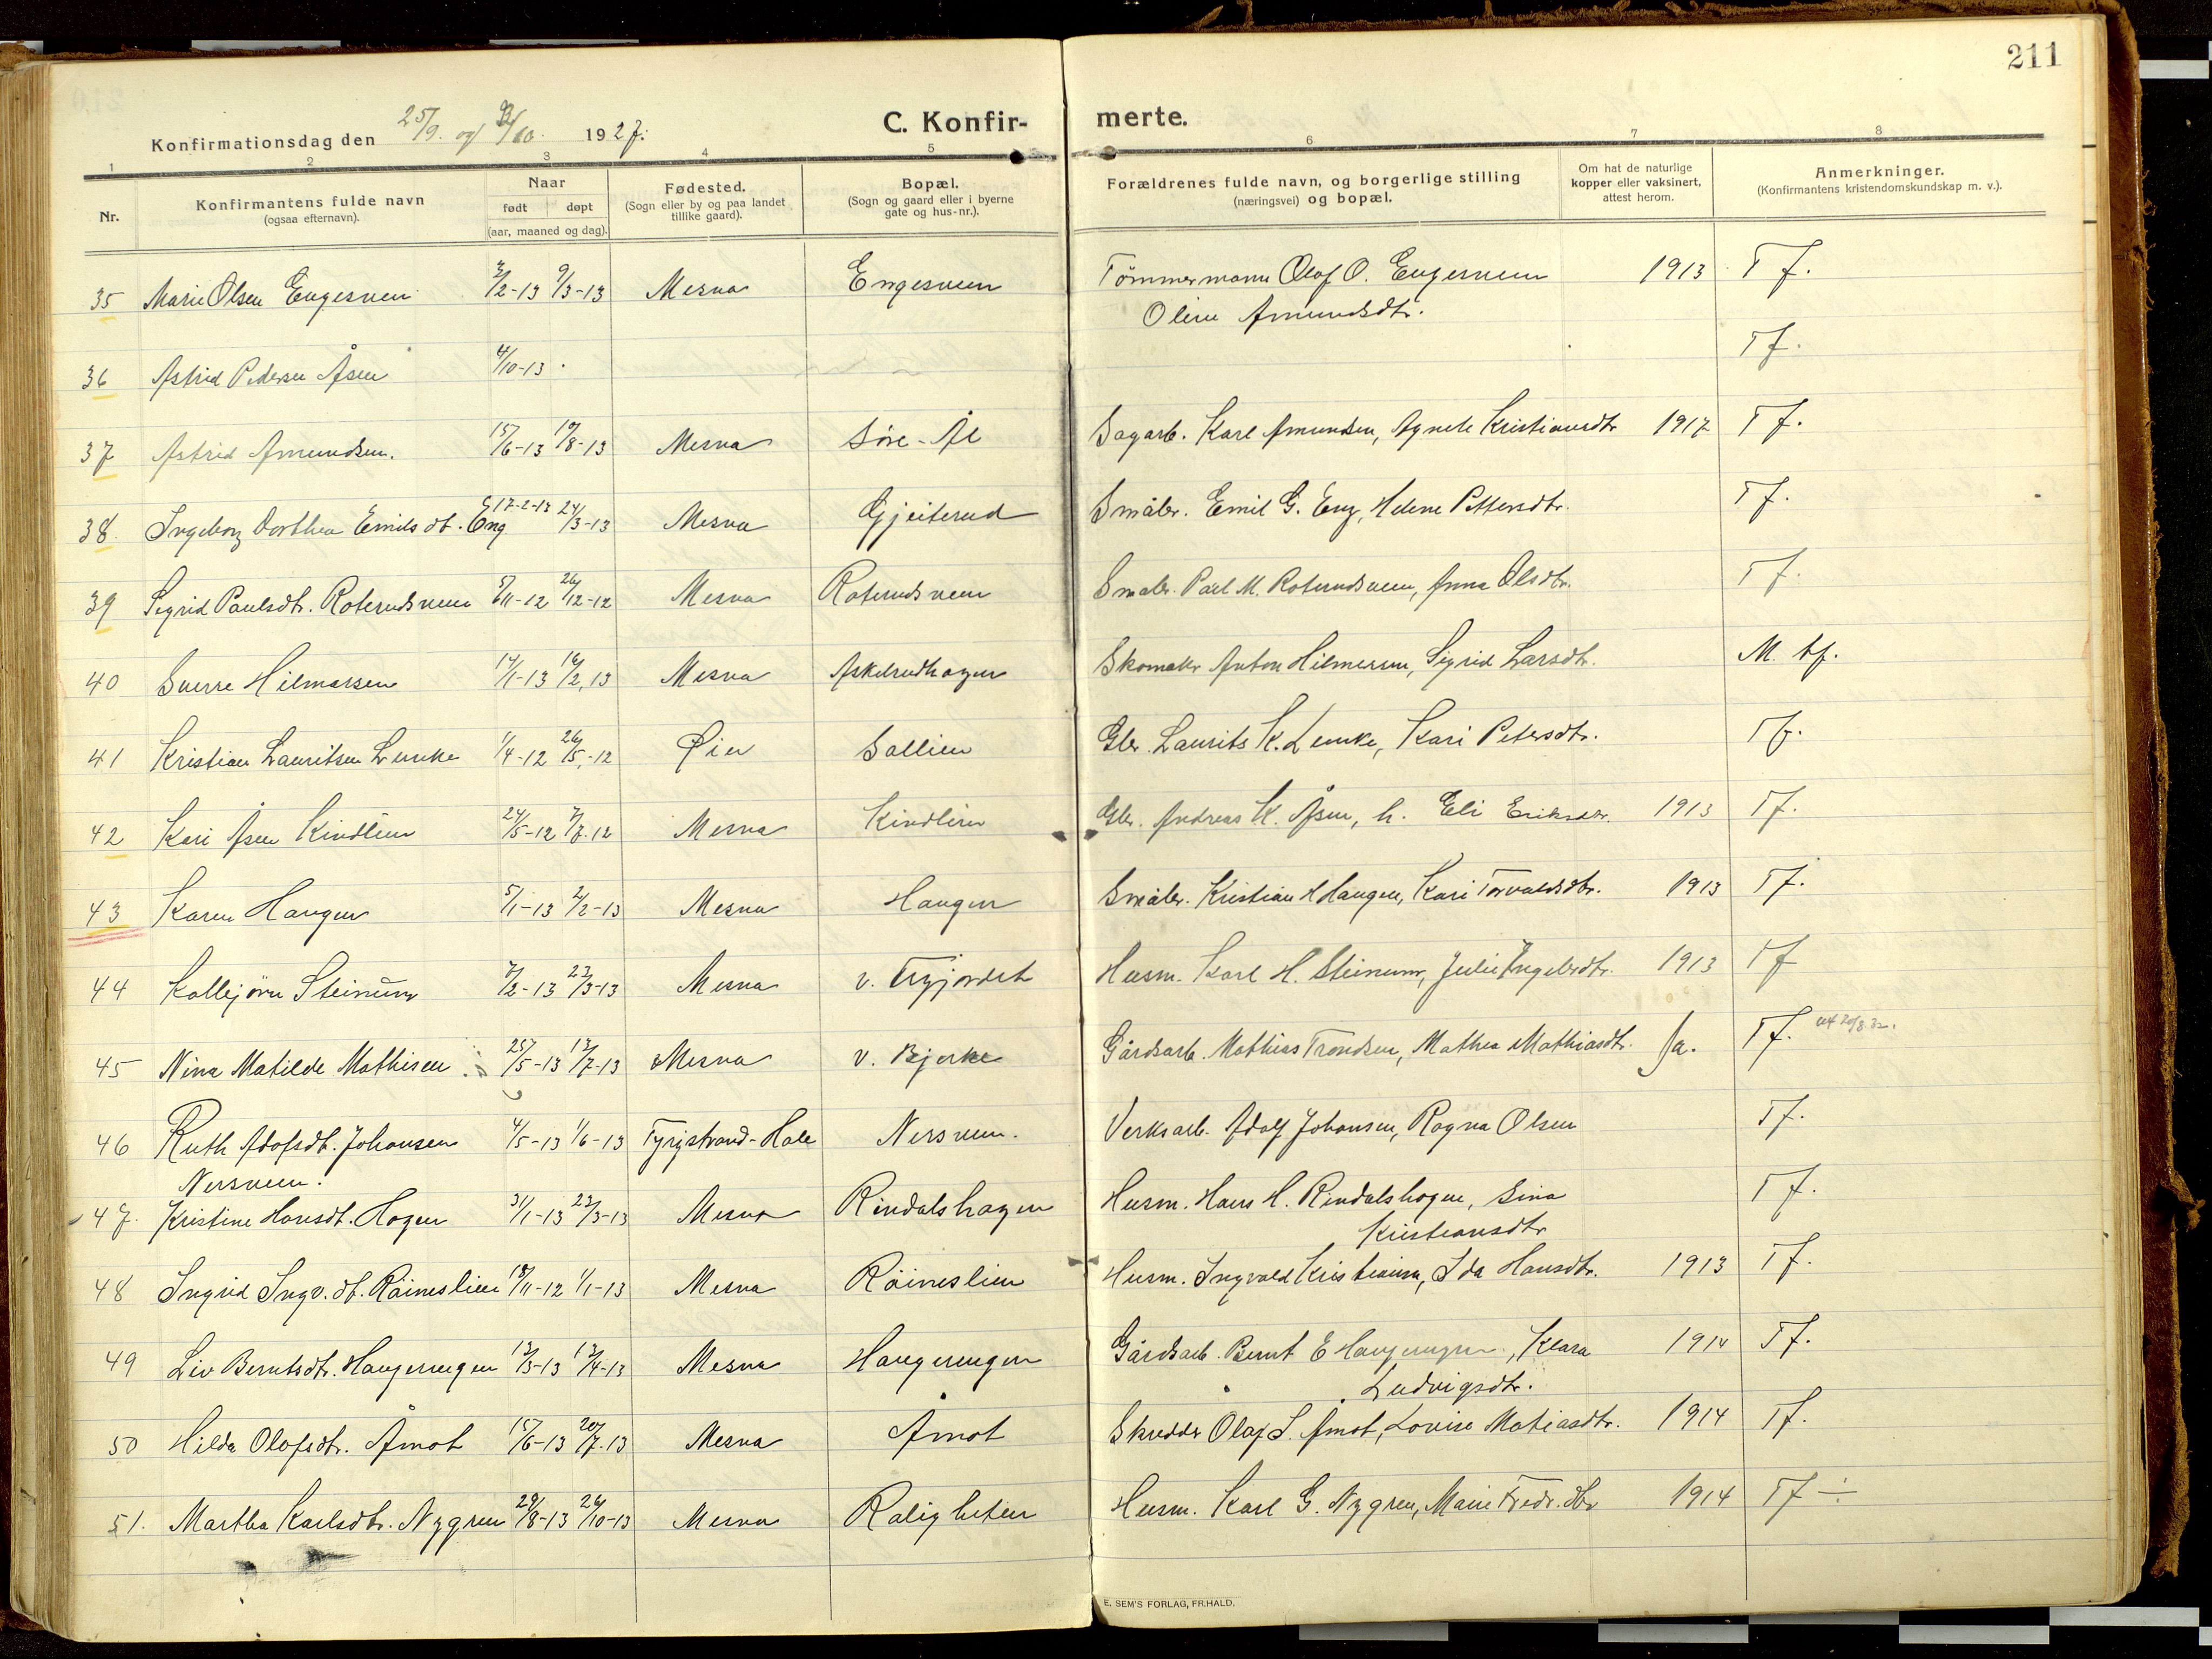 211
C. Konfirmerte.
Konfirmationsdag den 25/9. og 2/10. 1927.
1 2 3 4 5 6 7 8
Nr.
Konfirmantens fulde navn
(ogsaa efternavn).
Naar
født døpt
(aar, maaned og dag).
Fødested.
(Sogn eller by og paa landet
tillike gaard).
Bopæl.
(Sogn og gaard eller i byerne
gate og hus-nr.).
Forældrenes fulde navn, og borgerlige stilling
(næringsvei) og bopæl.
Om hat de naturlige
kopper eller vaksinert,
attest herom.
Anmerkninger.
(Konfirmantens kristendomskundskap m. v.).
35 Marie Olsen Engesveen /2-13 9/3-13 Mesna Engesveen Tømmermann Olaf O. Engesveen 1913 Tf.
Oline Amundsdtr.
36 Astrid Pedersen Åsen 4/10-13 Tf.
37 Astrid Amundsen. 15/6-13 10/8-13 Mesna Søre-Ål Sagarb. Karl Amundsen, Agnete Kristiansdtr 1917 Tf.
38. Ingeborg Dorthea Emilsdt. Eng 17-2-13 24/3-13 Mesna Gjeiterud Småbr. Emil G. Eng, Helene Pettersdtr. Tf.
39 Sigrid Paulsdt. Roterudsveen 5/11-12 26/12-12 Mesna Roterudsveen Småbr. Pål M. Roterudsveen, Anna Olsdtr. Tf.
40 Sverre Hilmarsen 14/1-13 16/2,13 Mesna Askelrudhagen Skomaker Anton Hilmersen, Sigrid Larsdtr. M. tf.
41 Kristian Lauritsen Lunke 1/4-12 26/5.-12 Øier Sollien Gbr. Laurits K. Lunke, Kari Petersdtr. Tf.
42 Kari Åsen Kindlien 24/5-12 7/7.12 Mesna Kindlien Gbr. Andreas K. Åsen, h. Eli Eriksdtr. 1913 Tf.
43 Karen Haugen 5/1-13 2/2-13 Mesna Haugen Småbr. Kristian H Haugen, Kari Torvaldsdtr. 1913 Tf.
44 Kollejørn Steinum 7/2-13 23/3-13 Mesna v. Husm. Karl H. Steinum, Julie Ingebrdtr. 1913 Tf
45 Nina Matilde Mathisen 25/5-13 13/7-13 Mesna v. Bjerke Gårdsarb. Mathias Trondsen, Mathea Mathiasdtr. Ja. Tf. 20/8 32.
46 Ruth Adofsdt. Johansen 4/5-13 1/6-13 Tyristrand-Hole Nersveen. Verksarb. Adolf Johansen, Ragna Olsen Tf.
Nersveen.
47. Kristine Hansdt. Hagen 31/1-13 23/3-13 Mesna Rindalshagen Husm. Hans H. Rindalshagen, Sina Tf.
Kristiansdtr
48 Ingrid Ingv.dt. Röineslien 18/11-12 1/1-13 Mesna Röineslien Husm. Ingvald Kristiansen, Ida Hansdtr. 1913 Tf.
49 Liv Berntsdtr. Haugerengen 13/3-13 13/4-13 Mesna Haugerengen Gårdsarb. Bernt E Haugerengen, Klara 1914 Tf.
Ludvigsdtr.
50 Hilda Olafsdtr. Åmot 15/6-13 20/7-13 Mesna Åmot Skredder Olaf L. Åmot, Lovise Matiasdtr. 1914 Tf.
51. Martha Karlsdtr. Nygren 29/8-13 26/10-13 Mesna Roligheten Husm. Karl G. Nygren, Marie Fredr.dtr 1914 Tf ÷
E. SEM'S FORLAG, FR.HALD.